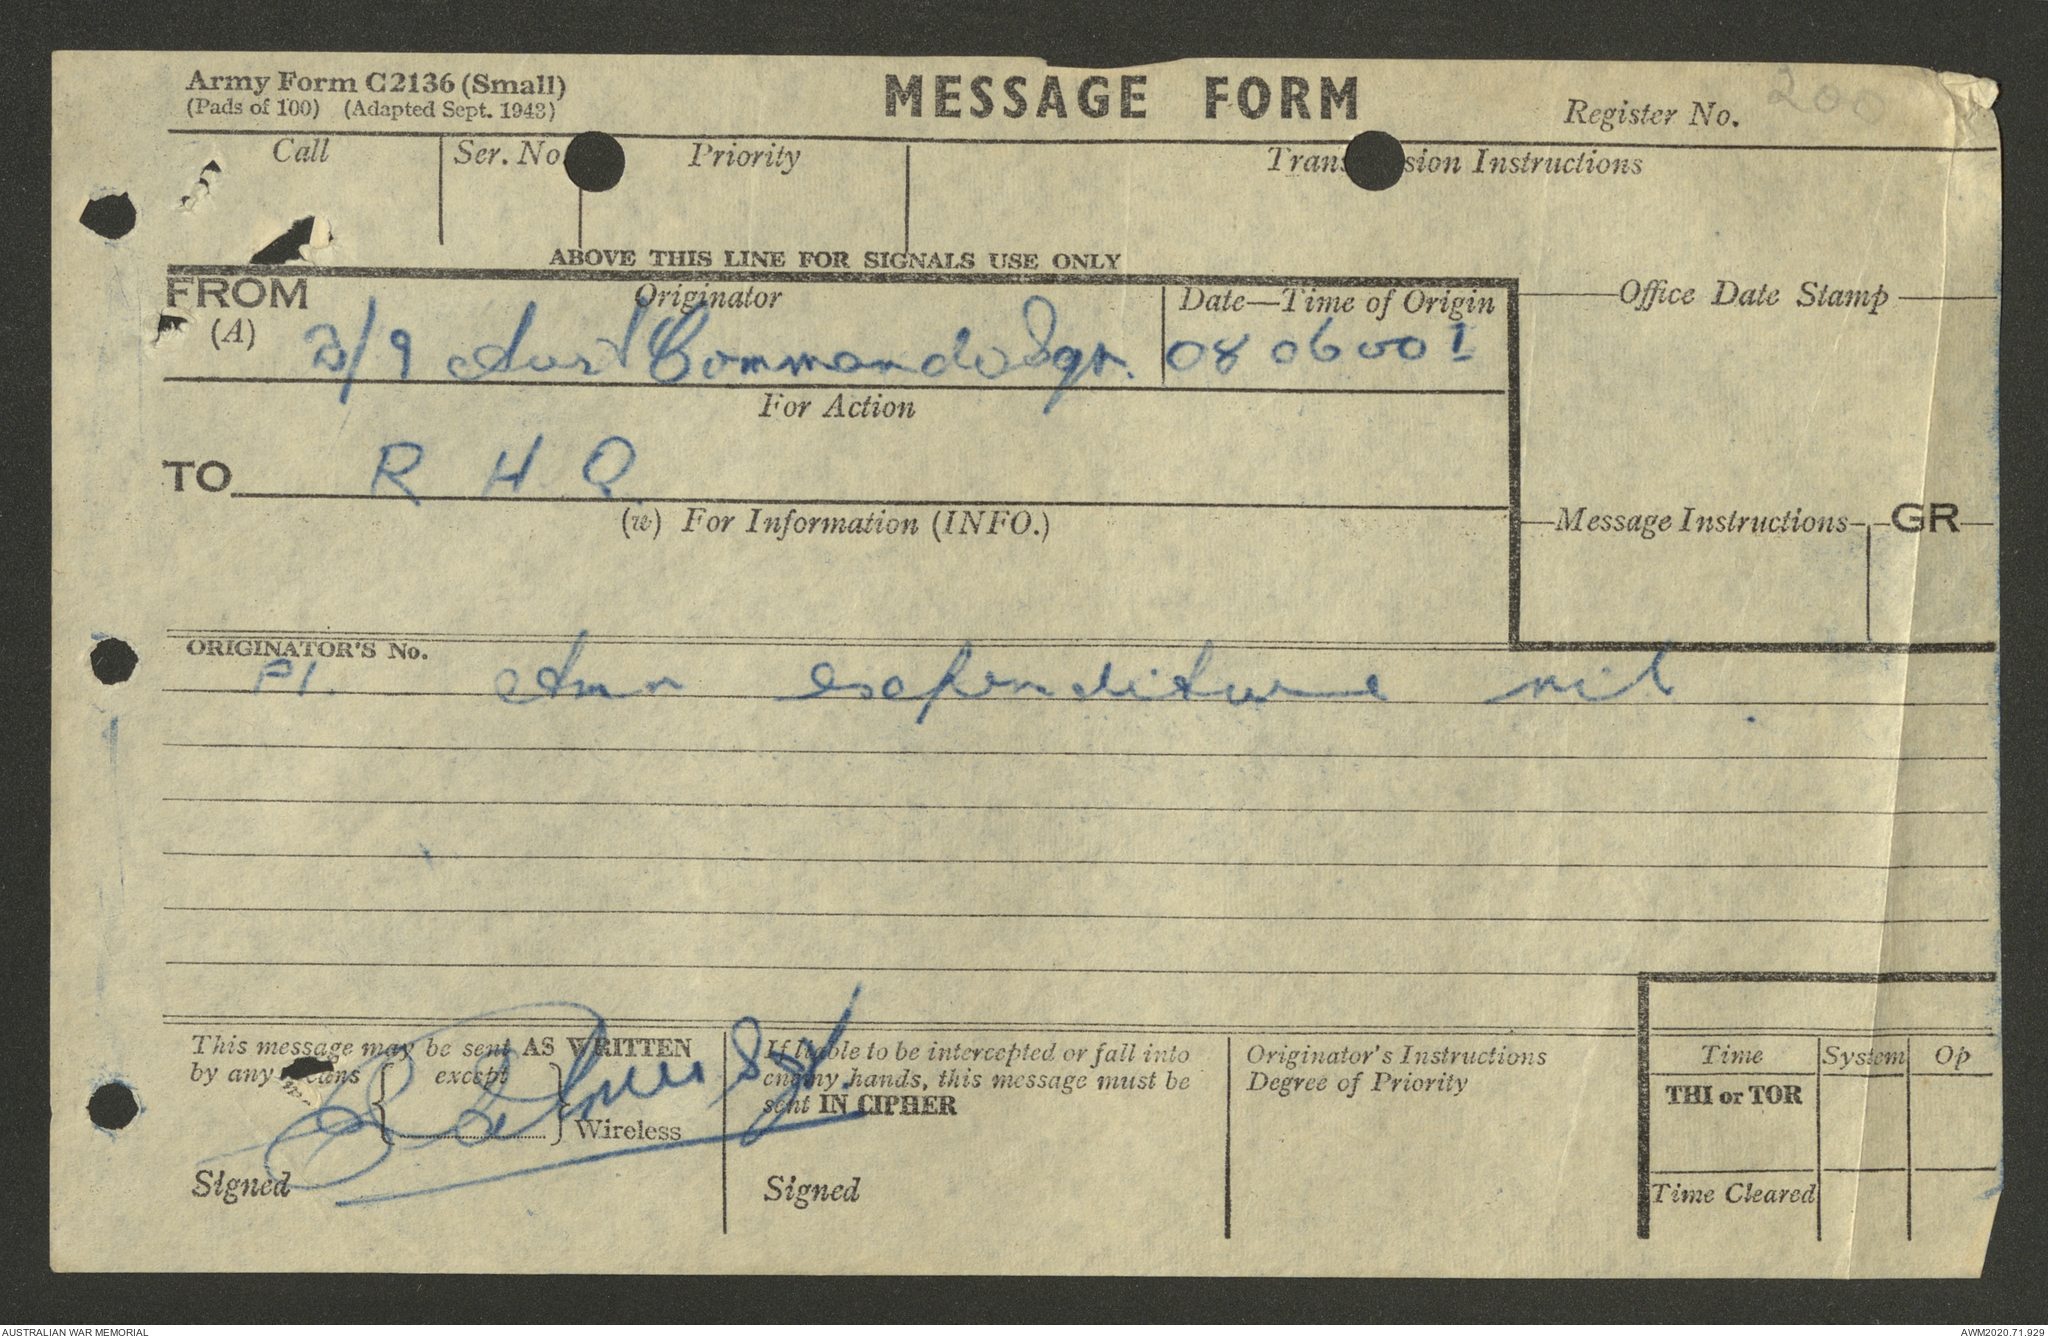 Army Form C2136 (Small)
(Pads of 100) (Adapted Sept. 1943)
MESSAGE FORM
Register No. 200
Call
Ser. No
Priority
Transsion Instructions
ABOVE THIS LINE FOR SIGNALS USE ONLY
FROM
(A)
Originator
2/9 Aust Commando Sqn.
Date—Time of Origin
080600 I
Office Date Stamp
For Action
TO
R H Q
(w) For Information (INFO.)
Message Instructions
GR
ORIGINATOR'S No.
P1. Amn expenditure nil.
This message may be sent AS WRITTEN
by any means except
Wireless
Signed
Sgt.
If liable to be intercepted or fall into
enemy hands, this message must be
sent IN CIPHER
Signed
Originator's Instructions
Degree of Priority
Time System Op
THI or TOR
Time Cleared
AUSTRALIAN WAR MEMORIAL
AWM2020.71.929